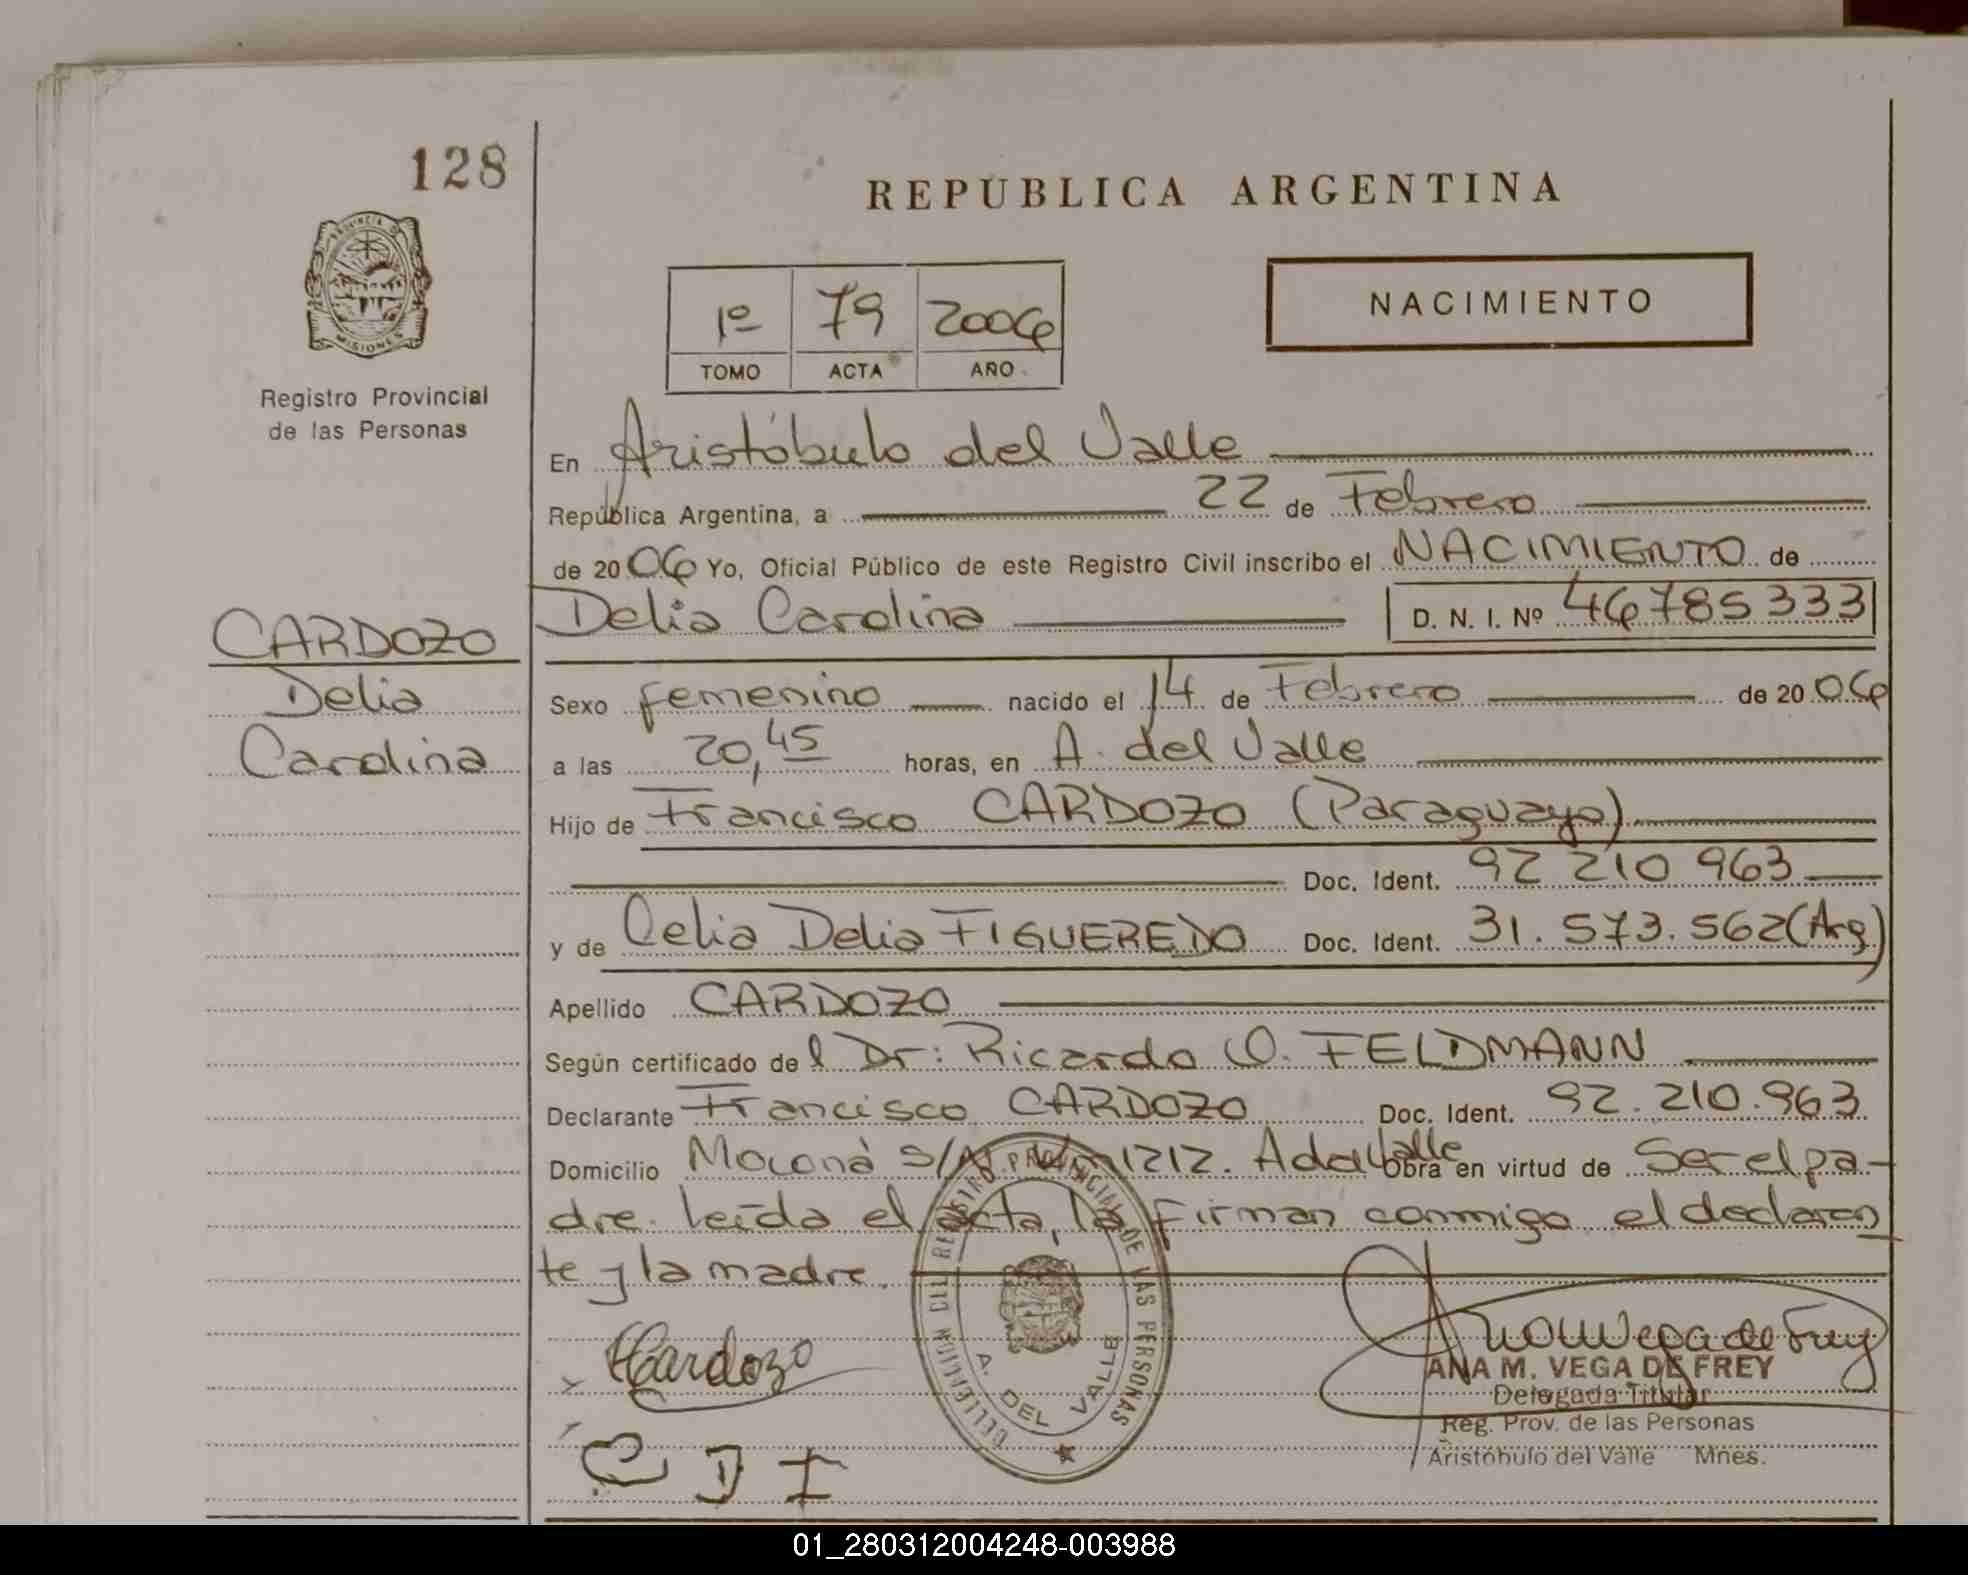 128
REPUBLICA ARGENTINA
PROVINCIA DE
MISIONES
Registro Provincial
de las Personas
1º 79 2006
TOMO ACTA AÑO
NACIMIENTO
En Aristóbulo del Valle
República Argentina, a 22 de Febrero
de 2006 Yo, Oficial Público de este Registro Civil inscribo el NACIMIENTO de
CARDOZO
Delia
Carolina
Delia Carolina D. N. I. Nº 46785333
Sexo femenino nacido el 14 de Febrero de 2006
a las 20,45 horas, en A. del Valle
Hijo de Francisco CARDOZO (Paraguayo)
Doc. Ident. 92 210 963
y de Celia Delia FIGUEREDO Doc. Ident. 31.573.562 (Arg)
Apellido CARDOZO
Según certificado del Dr: Ricardo O. FELDMANN
Declarante Francisco CARDOZO Doc. Ident. 92.210.963
Domicilio Moconá S/N Km 1212. A del Valle Obra en virtud de Ser el pa-
dre. leída el acta, la firman conmigo el declaran
te y la madre.
REGISTRO PROVINCIAL DE LAS PERSONAS
A. DEL VALLE
Cardozo
C D F
Ana M Vega de Frey
ANA M. VEGA DE FREY
Delegada Titular
Reg. Prov. de las Personas
Aristóbulo del Valle Mnes.
01_280312004248-003988